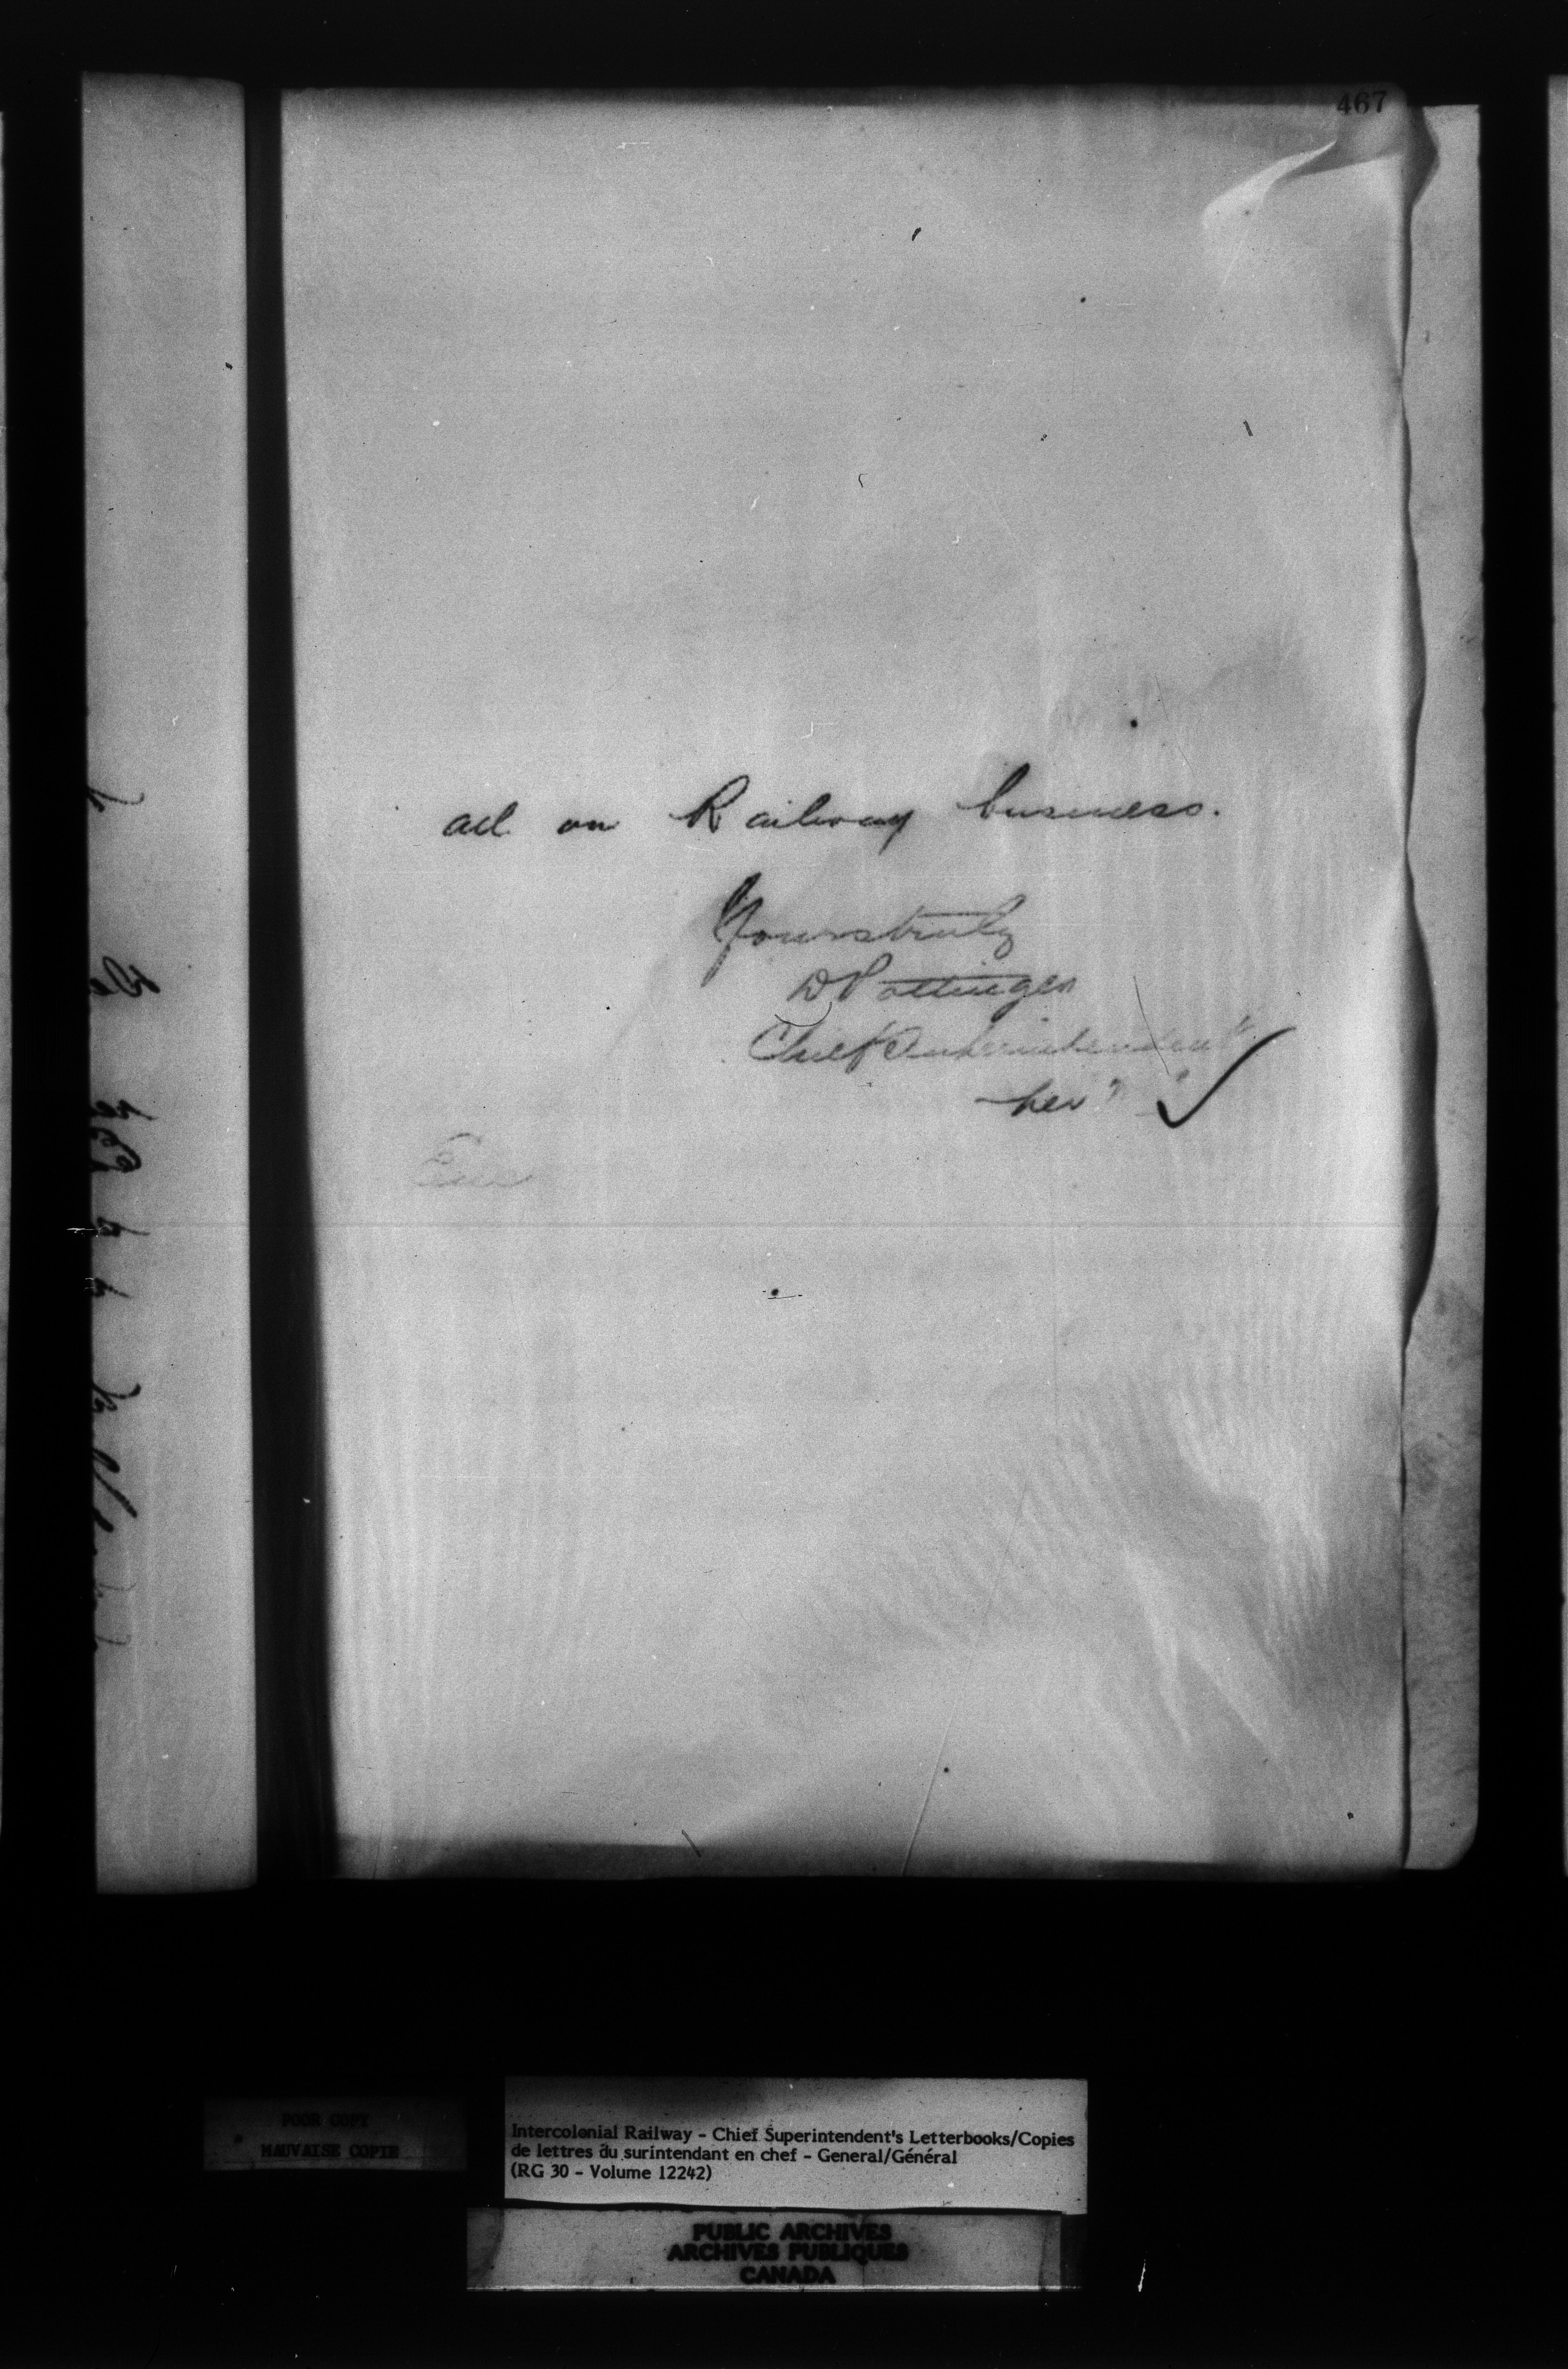 467
all on Railway business.
Yours truly
D Pottinger
Chief Superintendent
per
Enc
POOR COPY
MAUVAISE COPIE
Intercolonial Railway - Chief Superintendent's Letterbooks/Copies
de lettres du surintendant en chef - General/Général
(RG 30 - Volume 12242)
PUBLIC ARCHIVES
ARCHIVES PUBLIQUES
CANADA